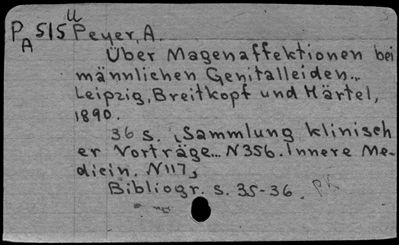 PA 515 u Peyer, A.
Über Magenaffektionen bei
männlichen Genitalleiden...
Leipzig, Breitkopf und Härtel,
1890.
36 s. (Sammlung klinisch
er Vorträge... N356. Innere Me-
dicin. N117)
Bibliogr. s. 35-36.